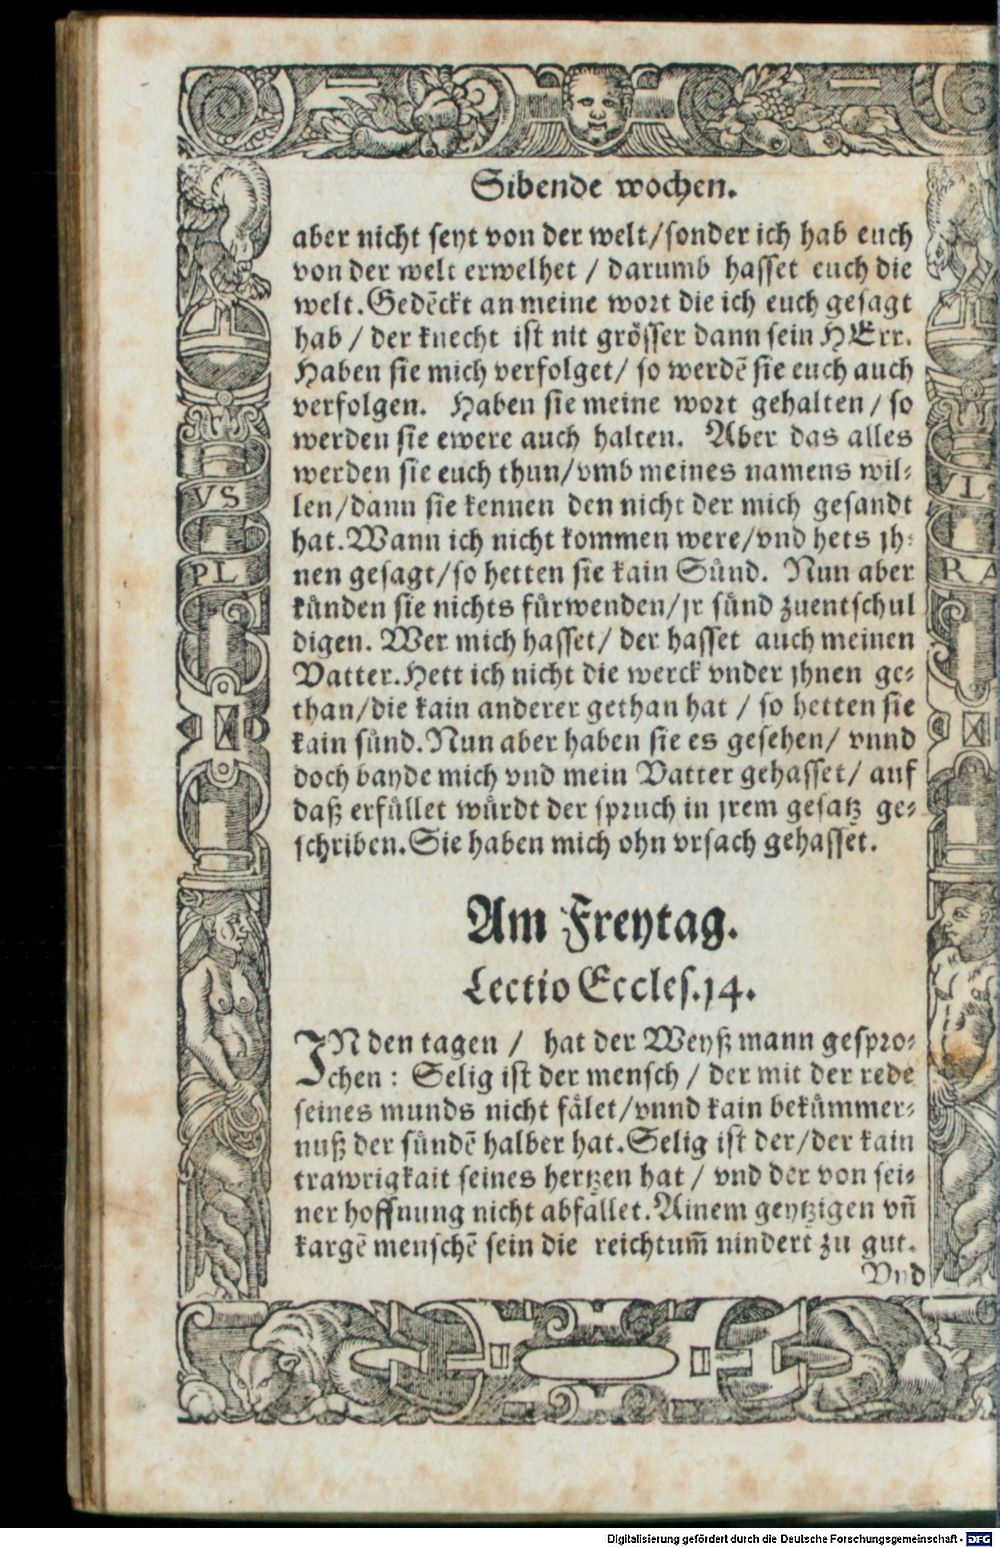 Sibende wochen.
aber nicht seyt von der welt/sonder ich hab euch
von der welt erwelhet / darumb hasset euch die
welt. Gedēckt an meine wort die ich euch gesagt
hab / der knecht ist nit grösser dann sein HErr.
Haben sie mich verfolget/ so werdē sie euch auch
verfolgen. Haben sie meine wort gehalten / so
werden sie ewere auch halten. Aber das alles
werden sie euch thun/vmb meines namens wil⸗
len/dann sie kennen den nicht der mich gesandt
hat. Wann ich nicht kommen were/vnd hets jh⸗
nen gesagt/so hetten sie kain Sünd. Nun aber
künden sie nichts fürwenden/jr sünd zuentschul
digen. Wer mich hasset/ der hasset auch meinen
Vatter. Hett ich nicht die werck vnder jhnen ge⸗
than/die kain anderer gethan hat / so hetten sie
kain sünd. Nun aber haben sie es gesehen/ vnnd
doch bayde mich vnd mein Vatter gehasset/ auf
daß erfüllet würdt der spruch in jrem gesatz ge⸗
schriben. Sie haben mich ohn vrsach gehasset.
Am Freytag.
Lectio Eccles. 14.
IN den tagen / hat der Weyß mann gespro⸗
chen : Selig ist der mensch / der mit der rede
seines munds nicht fälet/vnnd kain bekümmer⸗
nuß der sündē halber hat. Selig ist der/der kain
trawrigkait seines hertzen hat / vnd der von sei⸗
ner hoffnung nicht abfället. Ainem geytzigen vñ
kargē menschē sein die reichtum̄ nindert zu gut.
Vnd
VS
PL
VL
RA
Digitalisierung gefördert durch die Deutsche Forschungsgemeinschaft - DFG